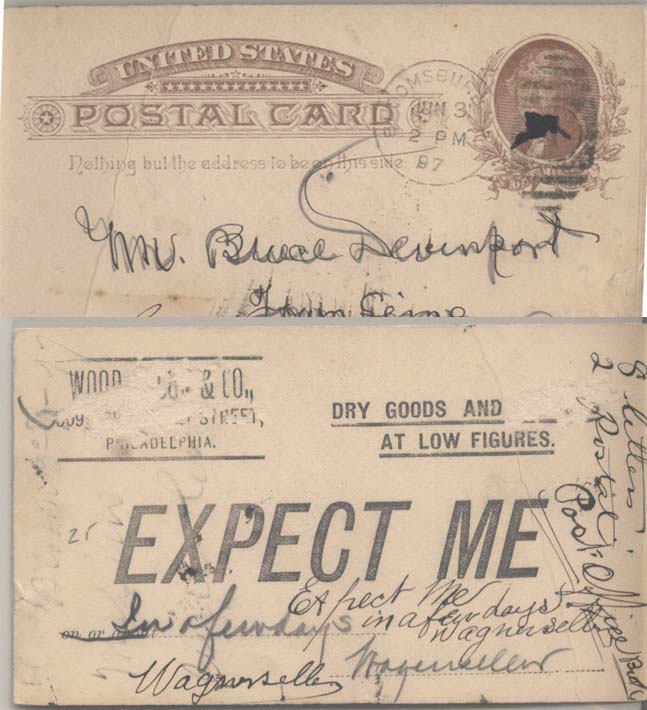 UNITED STATES
POSTAL CARD
Nothing but the address to be on this side
JUN 3
2 PM
87
Mr. Bruce Devenport
Town Line
WOOD & CO.,
STREET,
PHILADELPHIA.
DRY GOODS AND
AT LOW FIGURES.
EXPECT ME
25
on or
In a few days
Expect Me
in a few days
Wagnerseller
Wagnerseller
Wagenseller
8 letters
2 Postal
Post Office